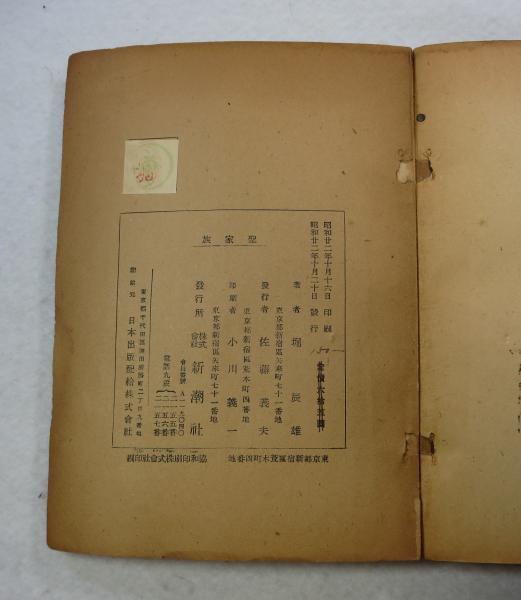 聖家族
昭和廿二年十月十六日 印刷
昭和廿二年十月二十日 發行
定價六拾五圓
著者 堀辰雄
東京都新宿區矢來町七十一番地
發行者 佐藤義夫
東京都新宿區荒木町四番地
印刷者 小川義一
東京都新宿區矢來町七十一番地
發行所 株式會社 新潮社
會員番號
配給元 日本出版配給株式會社
東京都新宿區荒木町四番地 協和印刷株式會社印刷